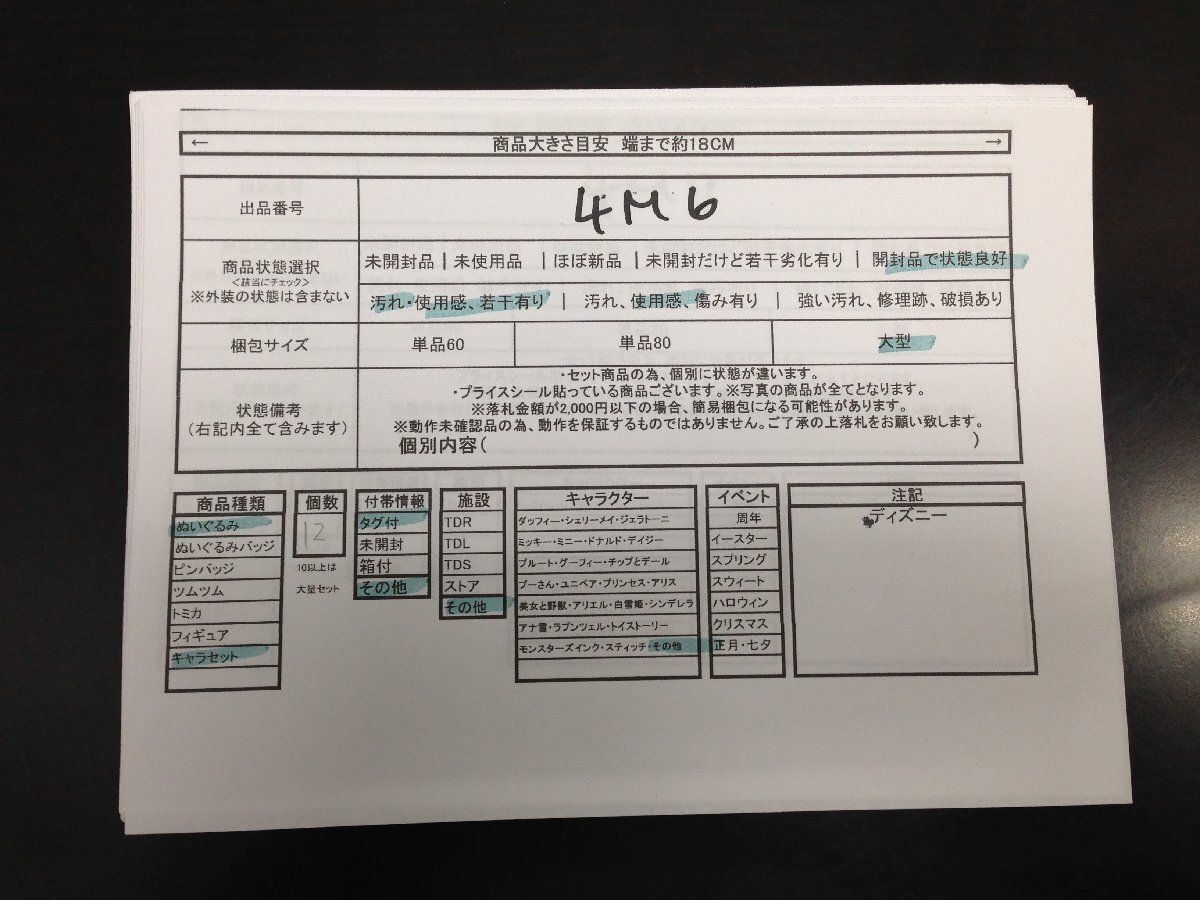 ← 商品大きさ目安 端まで約18CM →
出品番号 4M6
商品状態選択
<該当にチェック>
※外装の状態は含まない
未開封品 | 未使用品 | ほぼ新品 | 未開封だけど若干劣化有り | 開封品で状態良好
汚れ・使用感、若干有り | 汚れ、使用感、傷み有り | 強い汚れ、修理跡、破損あり
梱包サイズ 単品60 単品80 大型
状態備考
(右記内全て含みます)
・セット商品の為、個別に状態が違います。
・プライスシール貼っている商品ございます。※写真の商品が全てとなります。
※落札金額が2,000円以下の場合、簡易梱包になる可能性があります。
※動作未確認品の為、動作を保証するものではありません。ご了承の上落札をお願い致します。
個別内容( )
商品種類
ぬいぐるみ
ぬいぐるみバッジ
ピンバッジ
ツムツム
トミカ
フィギュア
キャラセット
個数
12
10以上は
大量セット
付帯情報
タグ付
未開封
箱付
その他
施設
TDR
TDL
TDS
ストア
その他
キャラクター
ダッフィー・シェリーメイ・ジェラトーニ
ミッキー・ミニー・ドナルド・デイジー
プルート・グーフィー・チップとデール
プーさん・ユニベア・プリンセス・アリス
美女と野獣・アリエル・白雪姫・シンデレラ
アナ雪・ラプンツェル・トイストーリー
モンスターズインク・スティッチ・その他
イベント
周年
イースター
スプリング
スウィート
ハロウィン
クリスマス
正月・七夕
注記
ディズニー